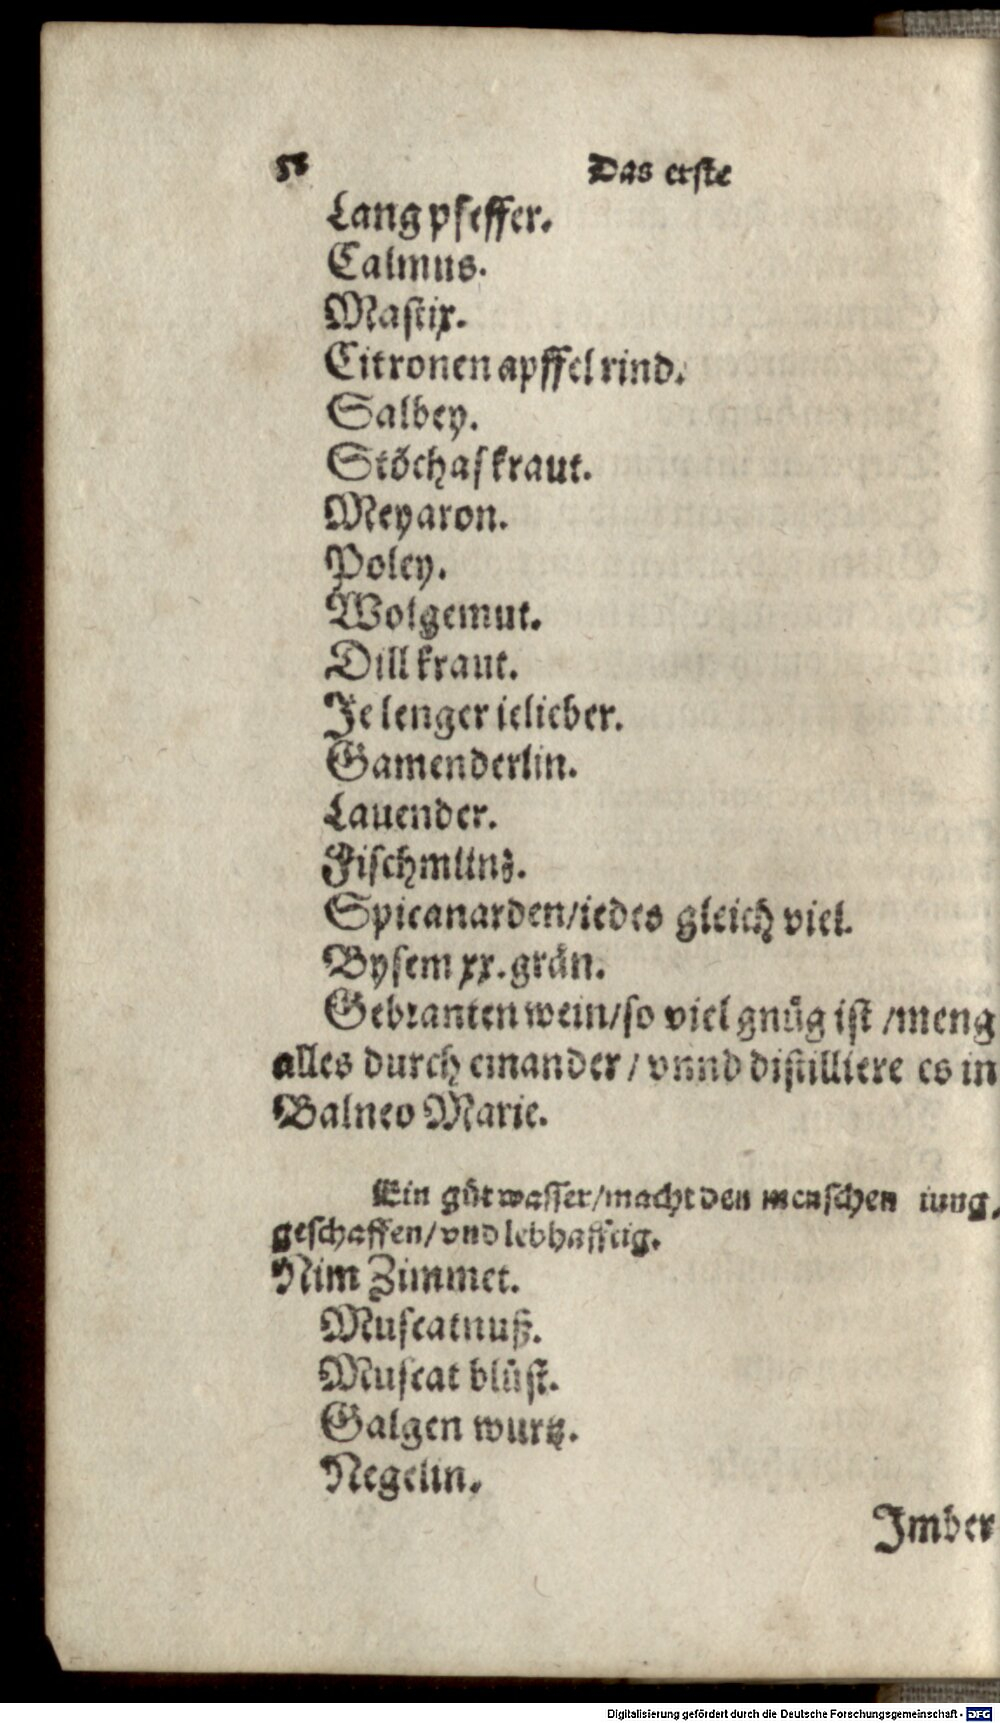 58 Das erste
Lang pfeffer.
Calmus.
Mastix.
Citronen apffel rind.
Salbey.
Stöchaskraut.
Meyaron.
Poley.
Wolgemut.
Dill kraut.
Je lenger ielieber.
Gamenderlin.
Lauender.
Fischmüntz.
Spicanarden/iedes gleich viel.
Bysem xx. grän.
Gebranten wein/so viel gnůg ist /meng
alles durch einander / vnnd distilliere es in
Balneo Marie.
Ein gůt wasser/macht den menschen iung,
geschaffen/vnd lebhafftig.
Nim Zimmet.
Muscatnuß.
Muscat blůst.
Galgen wurtz.
Negelin.
Imber
Digitalisierung gefördert durch die Deutsche Forschungsgemeinschaft - DFG